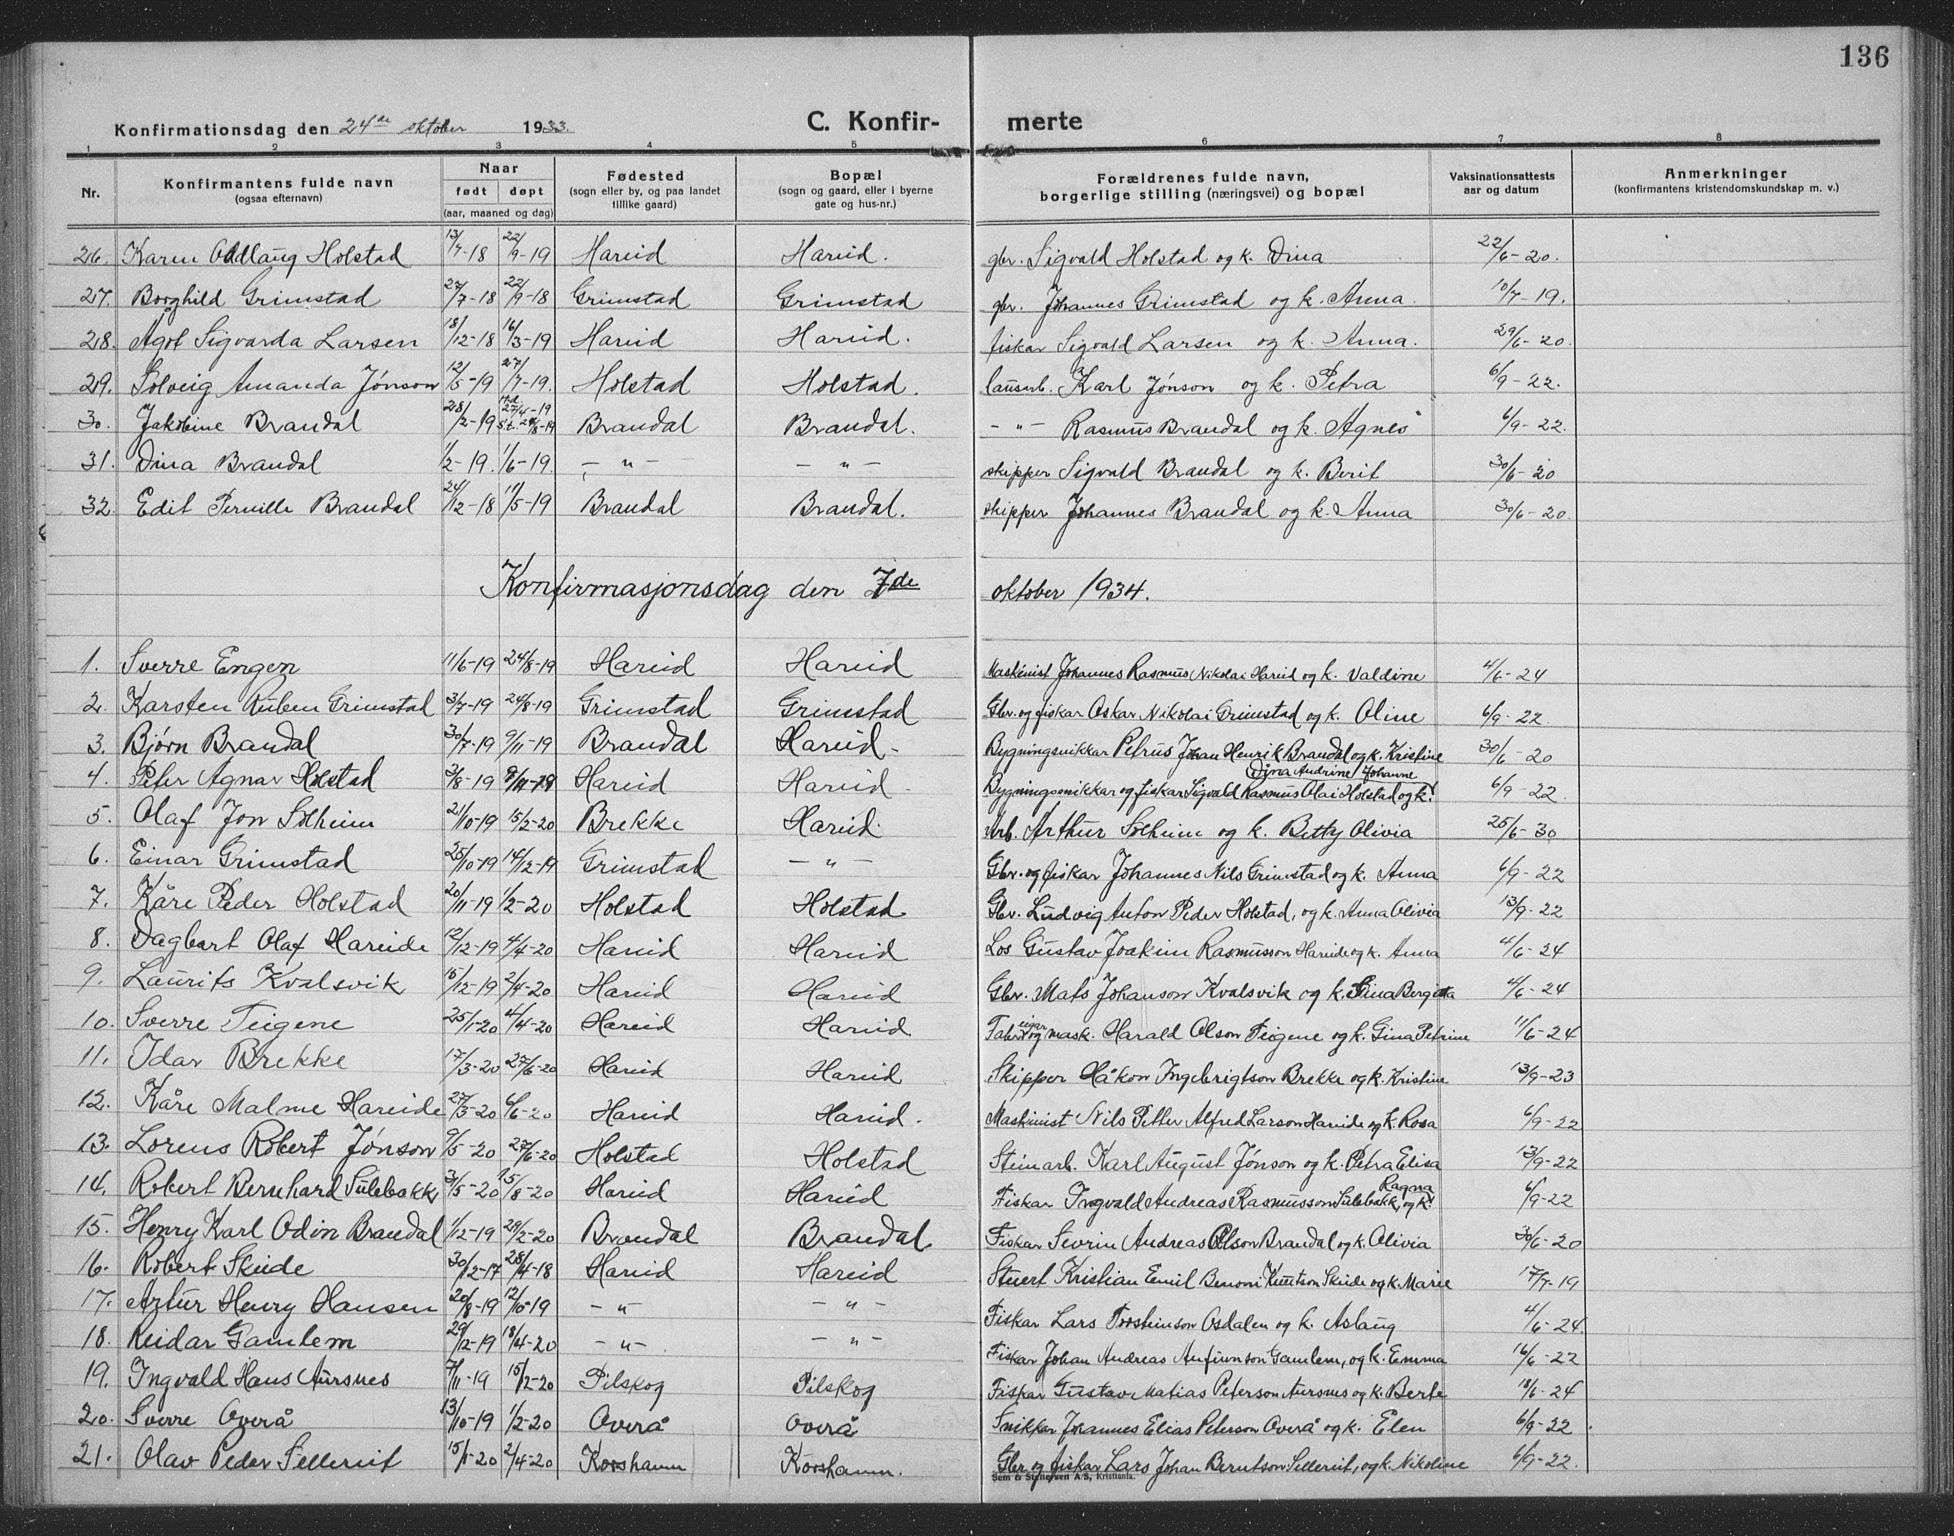 136
Konfirmationsdag den 24de oktober 1933. C. Konfir- merte
1 2 3 4 5 6 7 8
Nr. Konfirmantens fulde navn (ogsaa efternavn) Naar født døpt (aar, maaned og dag) Fødested (sogn eller by, og paa landet tillike gaard) Bopæl (sogn og gaard, eller i byerne gate og hus-nr.) Forældrenes fulde navn, borgerlige stilling (næringsvei) og bopæl Vaksinationsattests aar og datum Anmerkninger (konfirmantens kristendomskundskap m. v.)
26. Karen Oddlaug Holstad 13/7-18 22/9-19 Hareid Hareid. gbr. Sigvald Holstad og k. Dina 22/6-20.
27. Borghild Grimstad 27/7-18 22/9-18 Grimstad Grimstad gbr. Johannes Grimstad og k. Anna. 10/7-19.
28. Ågot Sigvarda Larsen 18/12-18 16/3-19 Hareid Hareid. fiskar Sigvald Larsen og k. Anna. 29/6-20.
29. Solveig Amanda Jónson 12/5-19 27/7-19. Holstad Holstad. lausarb. Karl Jónson og k. Petra 6/9-22.
30. Jakobine Brandal 28/2-19 27/4-19 Brandal Brandal. -"- Rasmus Brandal og k. Agnes 6/9-22.
31. Dina Brandal 1/2-19. 1/6-19. -"- -"- skipper Sigvald Brandal og k. Berit 30/6-20
32. Edit Pernille Brandal 24/12-18 11/5-19 Brandal Brandal. skipper Johannes Brandal og k. Anna 30/6-20.
Konfirmasjonsdag den 7de oktober 1934.
1. Sverre Engen 11/6-19 24/8-19 Hareid Hareid Maskinist Johannes Rasmus Nikolai Hareid og k. Valdine 4/6-24
2. Karsten Ruben Grimstad 3/7-19 24/8-19 Grimstad Grimstad Gbr. og fiskar Oskar Nikolai Grimstad og k. Oline 6/9-22.
3. Bjørn Brandal 30/7-19 9/11-19 Brandal Hareid- Bygningsnikkar Petrus Johan Henrik Brandal og k. Kristine 30/6-20
4. Peter Agnar Holstad 3/8-19 9/11-19 Hareid Hareid- Bygningssnikkar og fiskar Sigvald Rasmus Olai Holstad og k. Dina Andrine Johanne 6/9-22.
5. Olaf Jon Solheim 21/10-19 15/2-20 Brekke Hareid. Arb. Arthur Solheim og k. Betty Olivia 25/6-30.
6. Einar Grimstad 25/10-19 14/12-19 Grimstad -"- Gbr. og fiskar Johannes Nils Grimstad og k. Anna 6/9-22
7. Kåre Peder Holstad 20/11-19 1/2-20 Holstad Holstad Gbr. Ludvig Anton Peder Holstad, og k. Anna Olivia 13/9-22
8. Dagbart Olaf Hareide 12/12-19 4/4-20 Hareid Hareid Los Gustav Joakim Rasmusson Hareide og k. Anna 4/6-24
9. Laurits Kvalsvik 15/12-19 2/4-20 Hareid Hareid Gbr. Mats Johanson Kvalsvik og k. Gina Bergitta 4/6-24
10. Sverre Teigene 25/1-20 4/4-20 Hareid Hareid eigar og mask. Harald Olson Teigene og k. Gina Petrine 11/6-24
11. Idar Brekke 17/3-20 27/6-20 Hareid Hareid Skipper Håkon Ingebrigtson Brekke og k. Kristine 13/9-23
12. Kåre Malme Hareide 27/3-20 6/6-20 Hareid Hareid. Maskinist Nils Petter Alfred Larson Hareide og k. Rosa 6/9-22
13. Lorens Robert Jónson 9/5-20 27/6-20 Holstad Holstad Steinarb. Karl August Jónson og k. Petra Elisa 13/9-22
14. Robert Bernhard Sulebakk 31/5-20 15/8-20 Hareid Hareid Fiskar Ingvald Andreas Rasmusson Sulebakk, og k. Ragna 6/9-22
15. Henry Karl Odin Brandal 1/12-19 29/2-20 Brandal Brandal Fiskar Severin Andreas Olson Brandal og k. Olivia 30/6-20
16. Robert Skeide 30/12-17 28/4-18 Hareid Hareid Stuert Kristian Emil Benoni Knutson Skeide og k. Marie 17/7-19
17. Artur Henry Hansen 20/8-19 12/10-19 -"- -"- Fiskar Lars Torsteinson Osdalen og k. Aslaug 4/6-24.
18. Reidar Gamlem 29/12-19 18/4-20 -"- -"- Fiskar Johan Andreas Anfinnson Gamlem, og k. Emma 16/6-22
19. Ingvald Hans Aursnes 7/11-19 15/2-20 Pilskog Pilskog Fiskar Gustav Matias Peterson Aursnes og k. Berte 18/6-24
20. Sverre Overå 13/10-19 1/2-20 Overå Overå Snikkar Johannes Elias Peterson Overå og k. Elen 6/9-22
21. Olav Peder Sellereit 15/1-20 2/4-20 Korshamn Korshamn. Gbr. og fiskar Lars Johan Berntson Sellereit, og k. Nikoline 6/9-22.
Sem & Stenersen A/S, Kristiania.